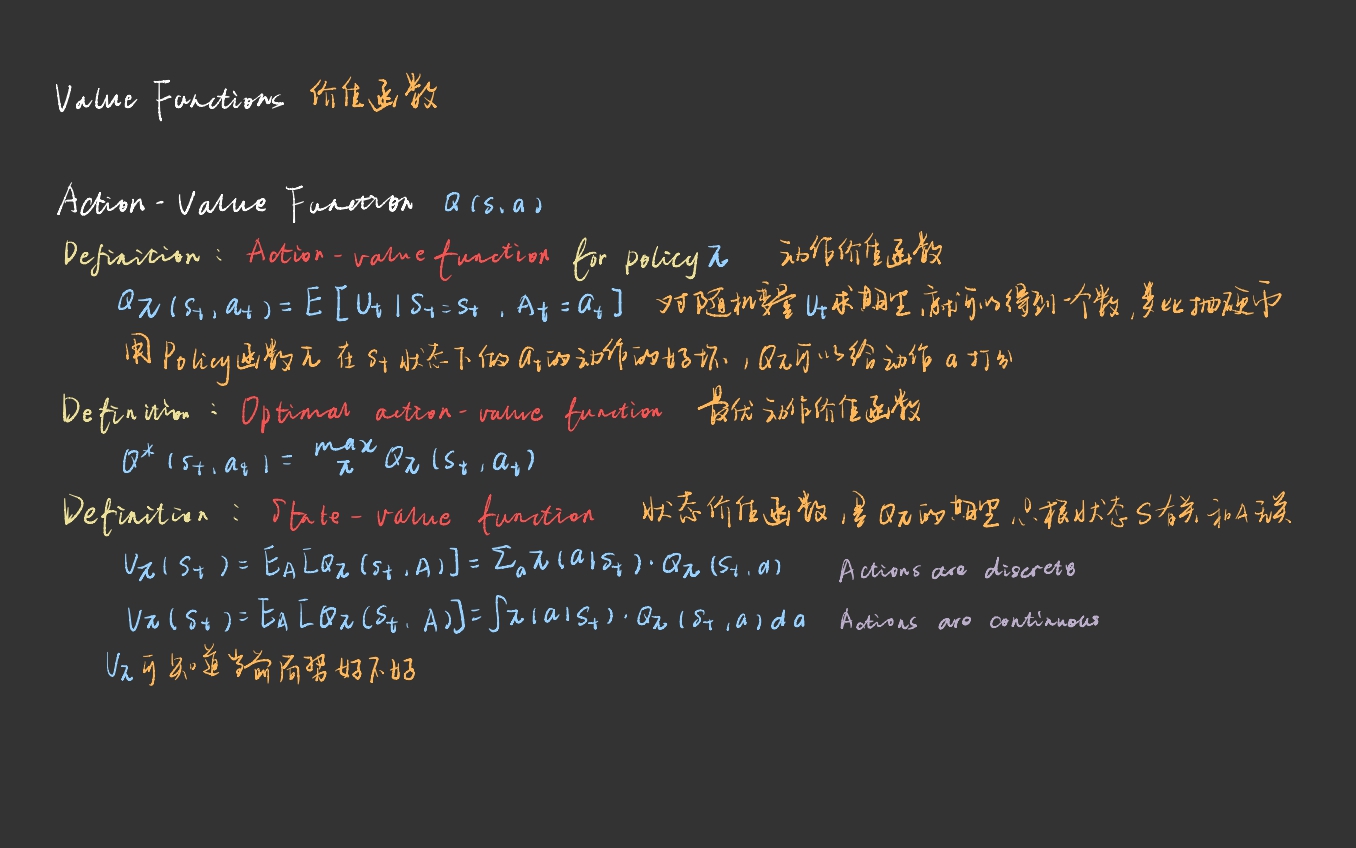 Value Functions 价值函数
Action-Value Function Q(s,a)
Definition: Action-value function for policy π 动作价值函数
Qπ(st,at)=E[Ut|St=st,At=at] 对随机变量Ut求期望,就可以得到一个数,类比抛硬币
用Policy函数π 在st状态下做at的动作的好坏,Qπ可以给动作a打分
Definition: Optimal action-value function 最优动作价值函数
Q*(st,at)= max π Qπ(st,at)
Definition: State-value function 状态价值函数,是Qπ的期望 只根状态S有关和A无关
Vπ(St)=EA[Qπ(st,A)]=Σa π(a|st)·Qπ(st,a) Actions are discrete
Vπ(St)=EA[Qπ(St,A)]=∫π(a|St)·Qπ(st,a)da Actions are continuous
Vπ可知道当前局势好不好